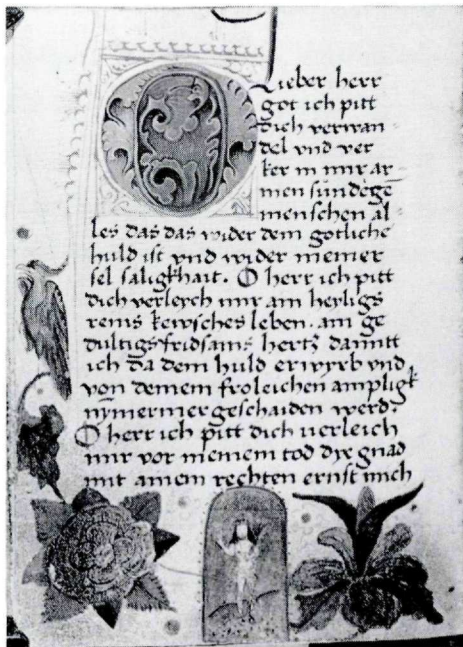 O lieber herr
got ich pitt
dich verwan-
del vnd ver
ker in mir ar-
men sündege
menschen al
les das das wider dein gotliche
huld ist vnd wider meiner
sel saligkhait. O herr ich pitt
dich verleych mir ain heyligs
reins kewsches leben. ain ge
dultigs fridsams hertz damitt
ich da dein huld erwyrb vnd
von deinem froleichen ampligk
nymermer geschaiden werd.
O herr ich pitt dich verleich
mir vor meinem tod dye gnad
mit ainem rechten ernst mich